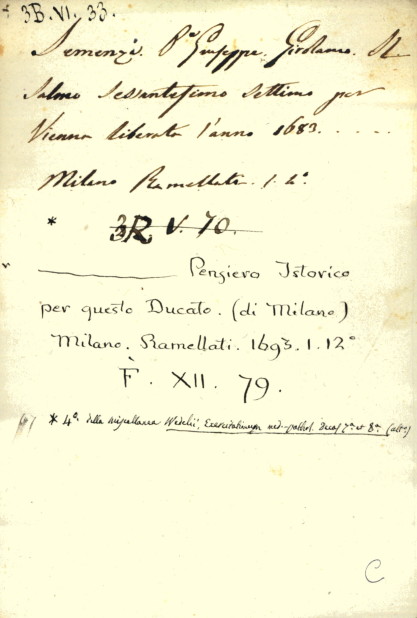 3B. VI. 33.
Semenzi. P.e Giuseppe. Girolamo. Il
Salmo Sessantesimo Settimo per
Vienna liberata l'anno 1683.....
Milano Ramellati. 1. 2°.
* 3R V. 70.
Pensiero Istorico
per questo Ducato. (di Milano)
Milano. Ramellati. 1693. 1. 12°
F. XII. 79.
* 4°. della miscellanea Wedelii, Exercitationum med-pathol. Decas 7.a et 8.a
C